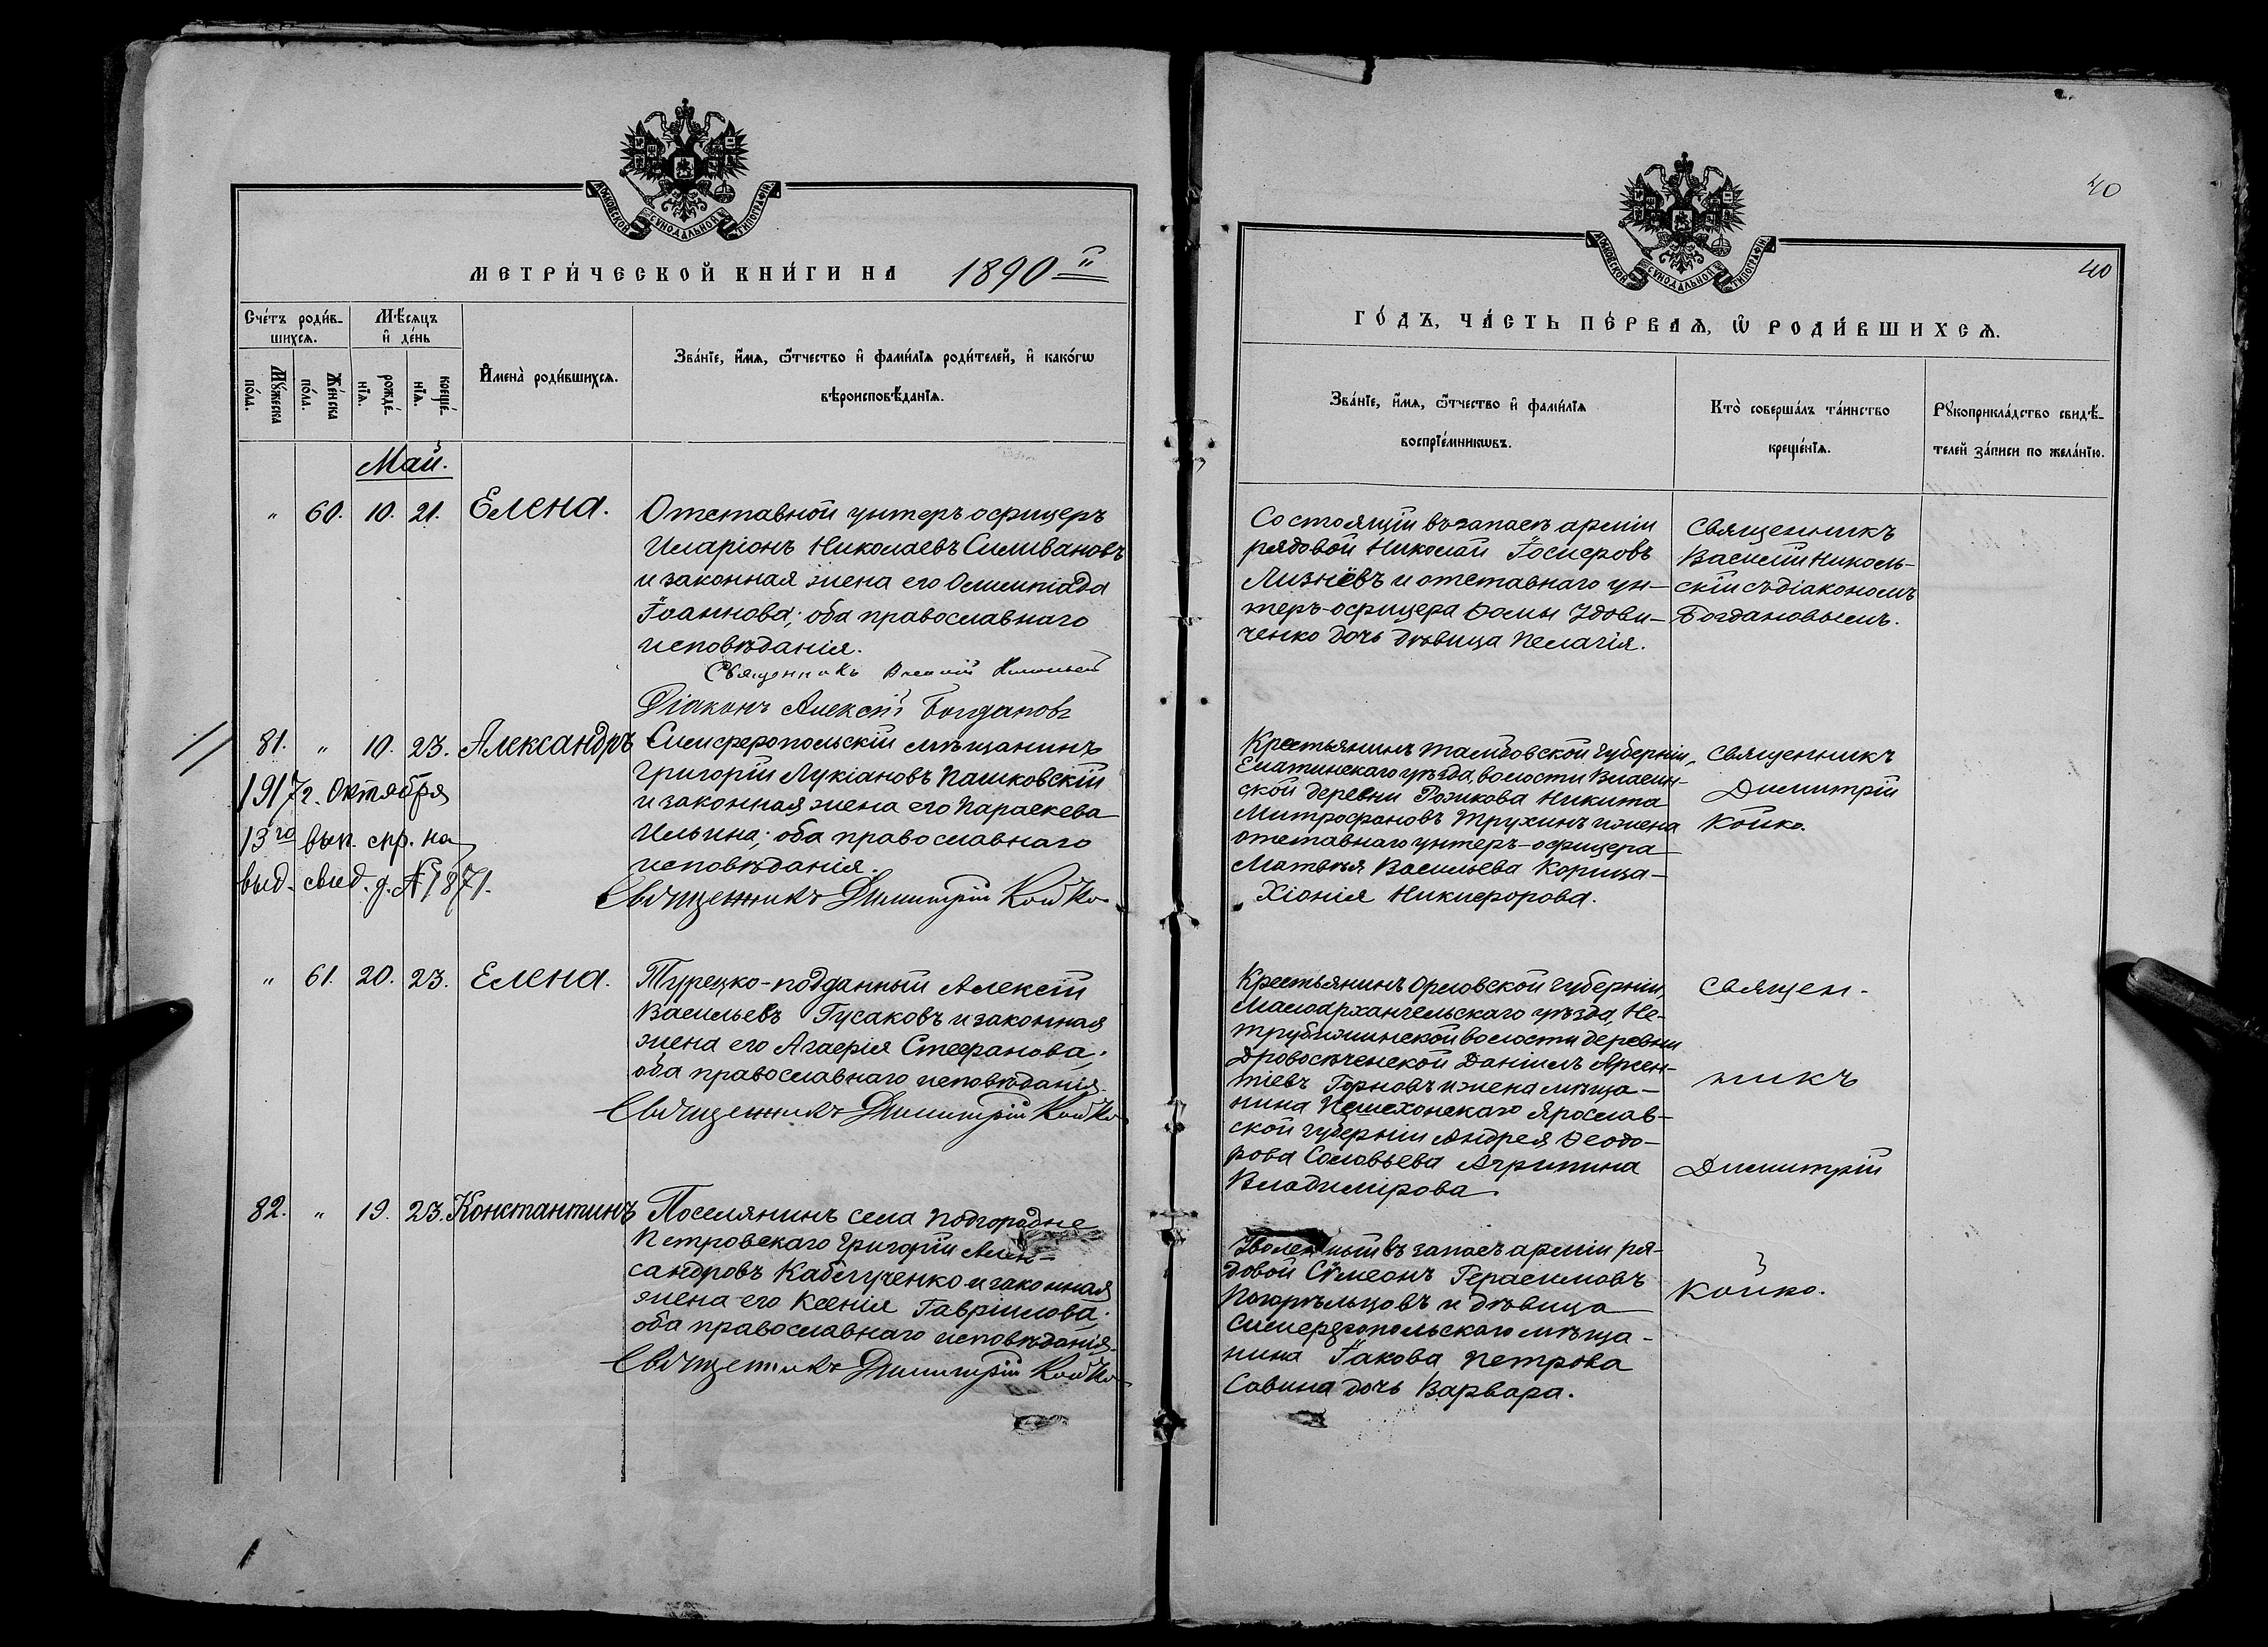 МОСКОВСКОЙ СѴНОДАЛЬНОЙ ТИПОГРАФІИ
МЕТРИ́ЧЕСКОЙ КНИ́ГИ НА 1890й
Сче́тъ роди́в-
шихсѧ.
Мѣ́сѧцъ
и҆ де́нь
Мꙋ́жеска
по́ла.
Же́нска
по́ла.
рожде́-
нїѧ.
креще́-
нїѧ.
И҆мена̀ роди́вшихсѧ.
Зва́нїе, и҆́мѧ, ѻ҆́тчество и҆ фами́лїѧ роди́телей, и҆ како́гѡ
вѣроисповѣ́данїѧ.
Май.
„ 60. 10. 21. Елена.
Отставной унтеръ офицеръ
Иларіонъ Николаевъ Силивановъ
и законная жена его Олимпіада
Іоаннова; оба православнаго
исповѣданія.
Священникъ Василій
Діаконъ Алексѣй Богдановъ
81. „ 10. 23. Александръ
Симферопольскій мѣщанинъ
Григорій Лукіановъ Пашковскій
и законная жена его Параскева
Ильина; оба православнаго
исповѣданія.
Священникъ Димитрій Койко
1917 г. Октября
13го вып. спр. на
выд. свид. д. № 871.
„ 61. 20. 23. Елена.
Турецко-подданный Алексій
Васильевъ Гусаковъ и законная
жена его Агафія Стефанова;
оба православнаго исповѣданія.
Священникъ Димитрій Койко
82. „ 19. 23. Константинъ
Поселянинъ села Подгородне
Петровскаго Григорій Алек=
сандровъ Каблученко и законная
жена его Ксенія Гавріилова;
оба православнаго исповѣданія.
Священникъ Димитрій Койко
40
40
МОСКОВСКОЙ СѴНОДАЛЬНОЙ ТИПОГРАФІИ
ГО́ДЪ, ЧА́СТЬ ПЕ́РВАѦ, Ѡ҆ РОДИ́ВШИХСѦ.
Зва́нїе, и҆́мѧ, ѻ҆́тчество и҆ фами́лїѧ
воспрїе́мникѡвъ.
Кто̀ соверша́лъ та́инство
креще́нїѧ.
Рꙋкоприкла́дство свидѣ́-
телей за́писи по жела́нїю.
Состоящій въ запасѣ арміи
рядовой Николай Іосифовъ
Лизнёвъ и отставнаго ун-
теръ-офицера Ѳомы Удови-
ченко дочь дѣвица Пелагія.
Священникъ
Василій Николь-
скій съ діакономъ
Богдановымъ.
Крестьянинъ Тамбовской губерніи,
Елатинскаго уѣзда, волости Власин-
ской деревни Рожкова Никита
Митрофановъ Трухинъ и жена
отставнаго унтеръ-офицера
Матвѣя Васильева Корица-
Хіонія Никифорова.
Священникъ
Димитрій
Койко.
Крестьянинъ Орловской губерніи,
Малоархангельскаго уѣзда, Не-
волости деревни
Дровосѣченской Даніилъ Арсен-
тіевъ Горновъ и жена мѣща-
нина Пешехонскаго Ярослав-
ской губерніи Андрея Ѳеодо-
рова Соловьева Агрипина
Владимірова.
Священ-
никъ
Димитрій
Койко.
Уволенный въ запасъ арміи ря-
довой Сѵмеонъ Герасимовъ
Погорѣльцовъ и дѣвица
Симферопольскаго мѣща-
нина Іакова Петрова
Савина дочь Варвара.